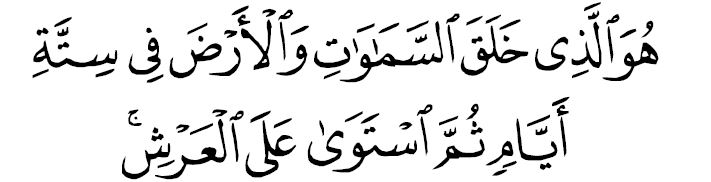 هُوَ ٱلَّذِى خَلَقَ ٱلسَّمَـٰوَٰتِ وَٱلْأَرْضَ فِى سِتَّةِ
أَيَّامٍ ثُمَّ ٱسْتَوَىٰ عَلَى ٱلْعَرْشِ ۚ